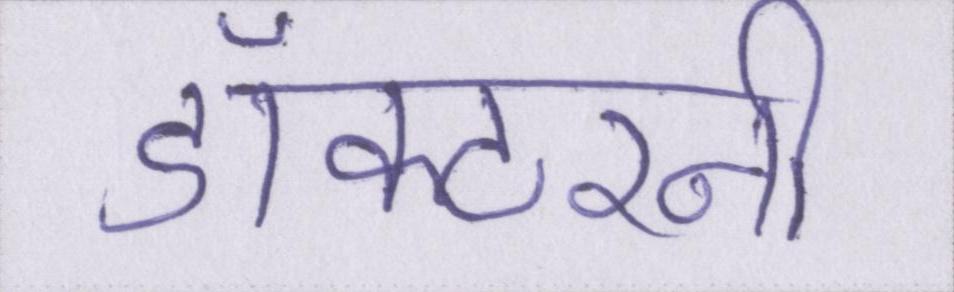 डॉक्टरनी